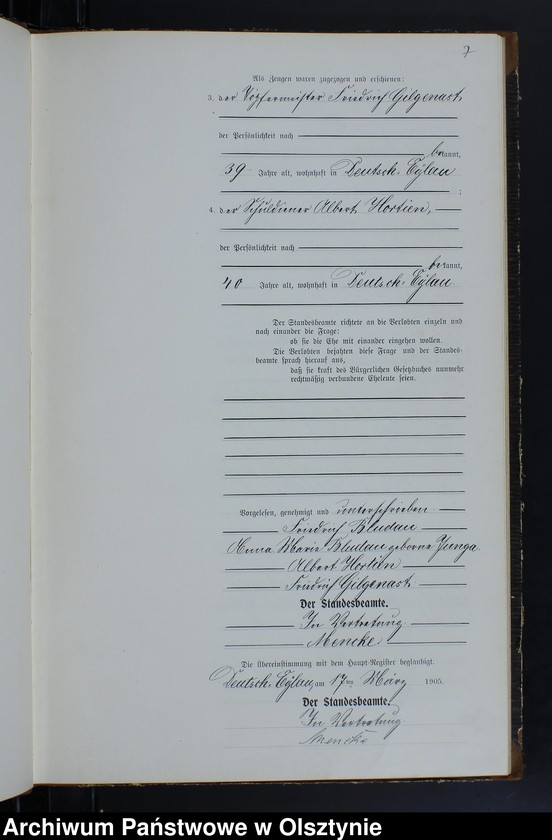 7
Als Zeugen waren zugezogen und erschienen:
3. der Töpfermeister Friedrich Gilgenast,
der Persönlichkeit nach
bekannt,
39 Jahre alt, wohnhaft in Deutsch-Eylau
;
4. der Schuldiener Albert Hortien,
der Persönlichkeit nach
bekannt,
40 Jahre alt, wohnhaft in Deutsch-Eylau.
Der Standesbeamte richtete an die Verlobten einzeln und
nach einander die Frage:
ob sie die Ehe mit einander eingehen wollen.
Die Verlobten bejahten diese Frage und der Standes-
beamte sprach hierauf aus,
daß sie kraft des Bürgerlichen Gesetzbuches nunmehr
rechtmäßig verbundene Eheleute seien.
Vorgelesen, genehmigt und unterschrieben
Friedrich Bludau
Anna Marie Bludau geborne Junga.
Albert Hortien
Friedrich Gilgenast
Der Standesbeamte.
In Vertretung
Mencke
Die Übereinstimmung mit dem Haupt-Register beglaubigt
Deutsch-Eylau, am 17ten März 1905.
Der Standesbeamte.
In Vertretung
Mencke
Archiwum Państwowe w Olsztynie